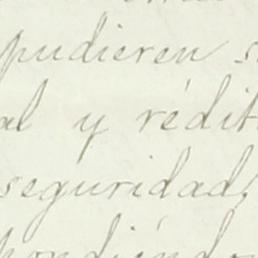 pudieren s
al y rédit
seguridad,
pondiéndo